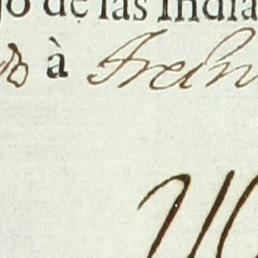 jo de las India
do à Trein